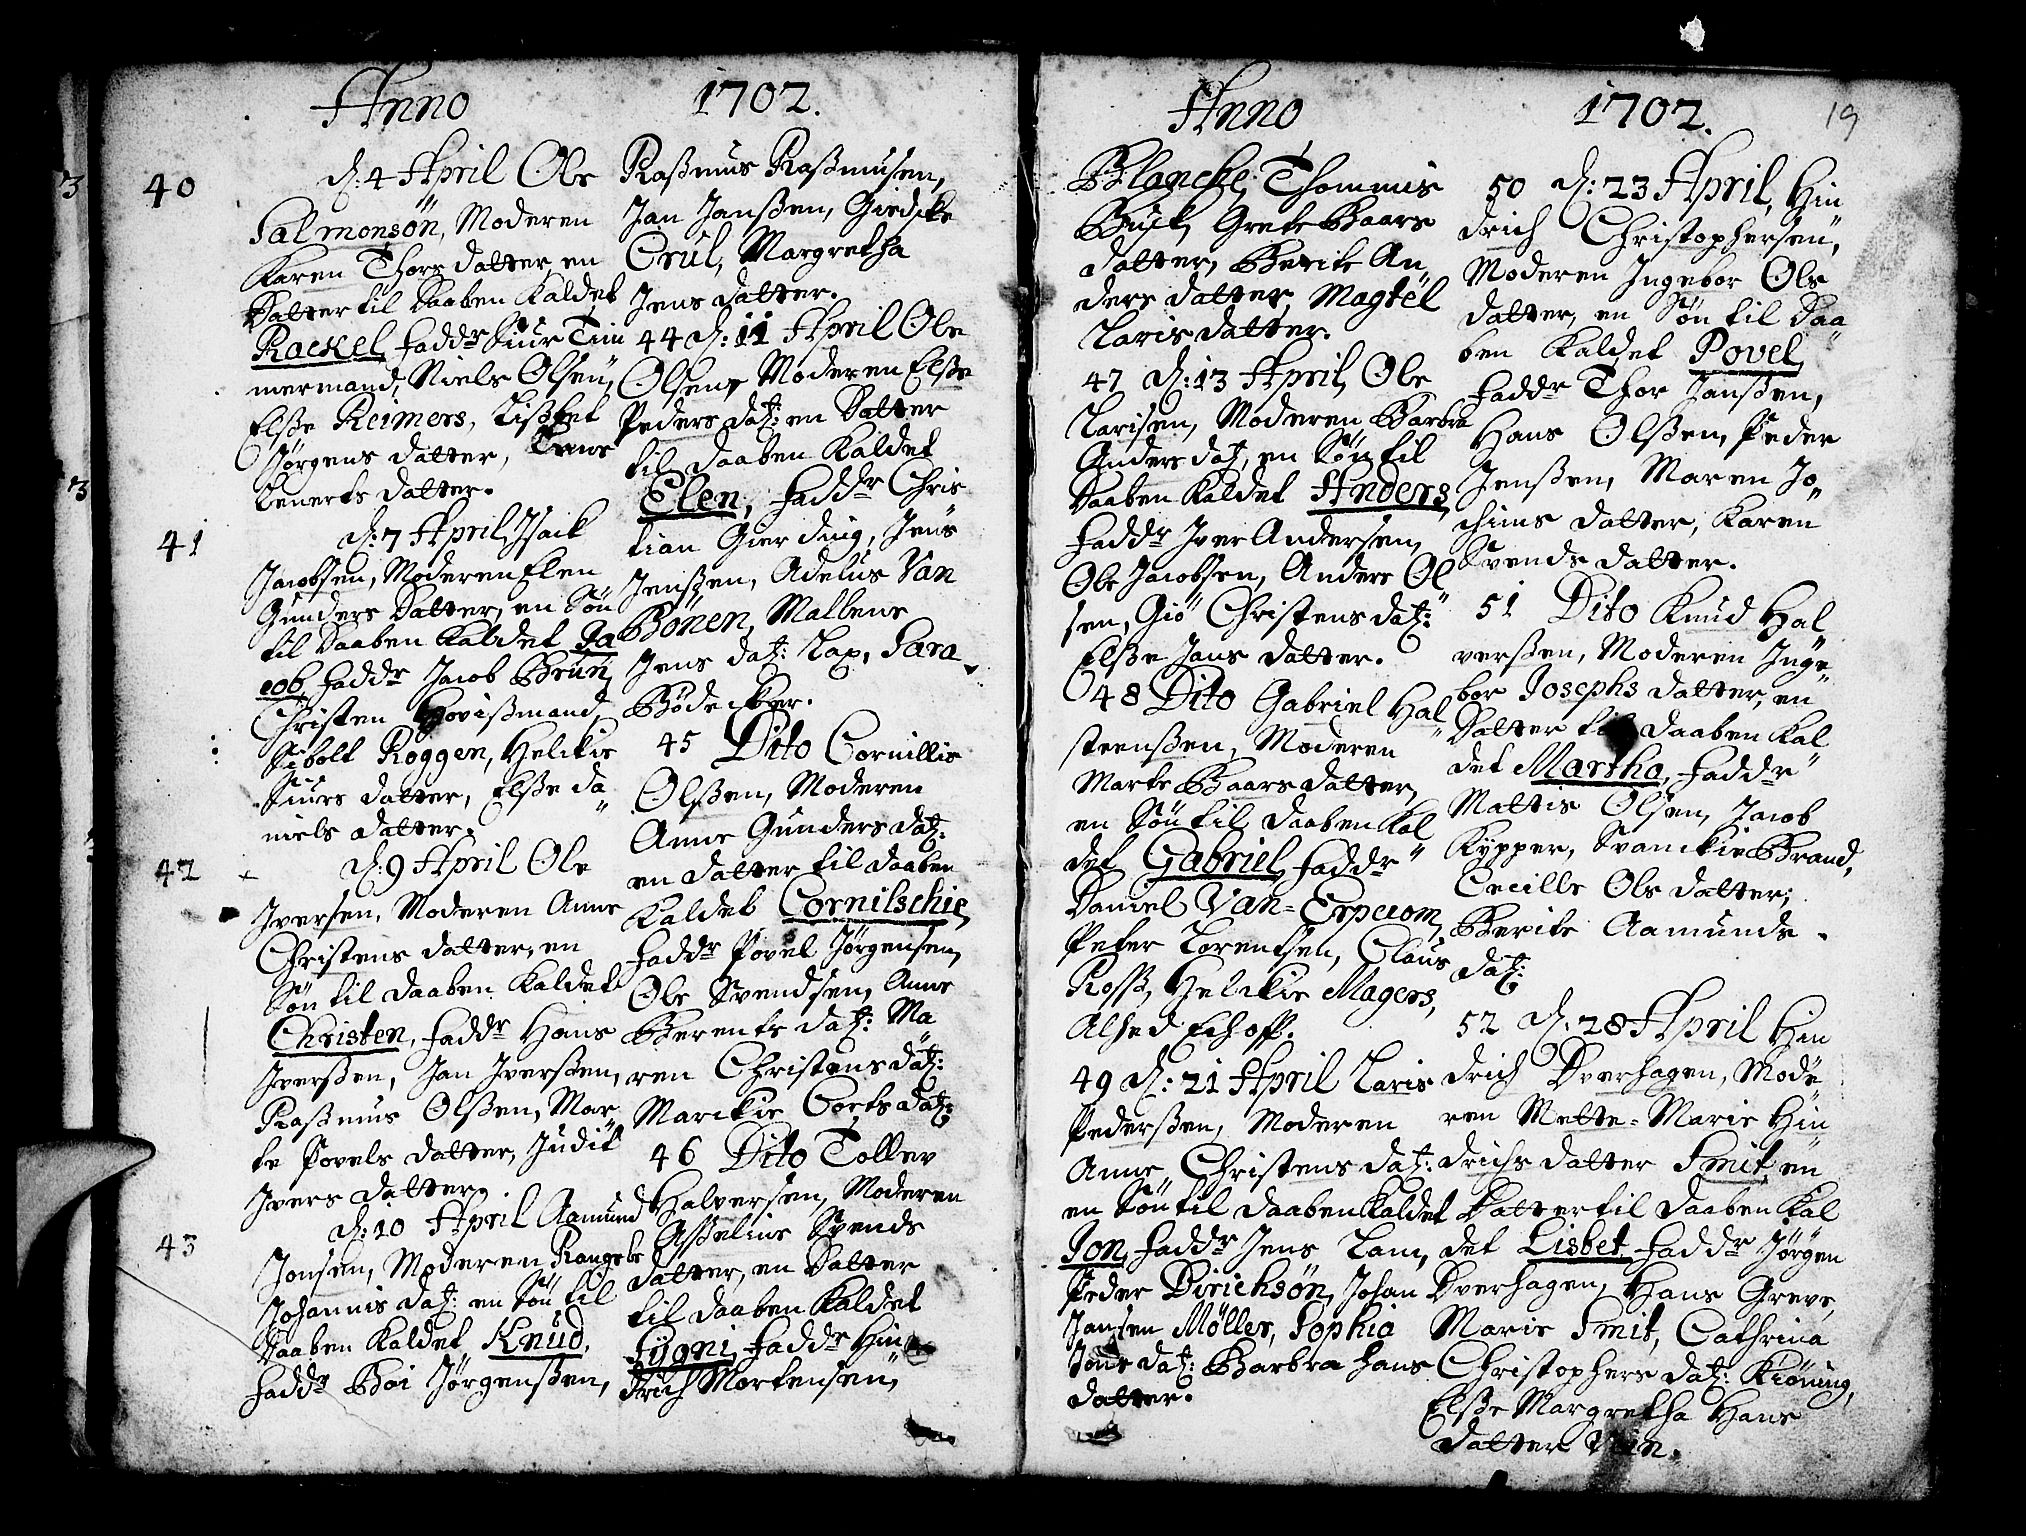 Anno 1702.
40 d: 4 April Ole
Salmonsøn, Moderen
Karen Thors datter, en
Datter til Daaben kaldet
Rackel, Faddr Siur Tim
mermand, Niels Olsen,
Elsße Reimers, Lisbet
Jørgens datter,
Lenerts datter.
41 d: 7 April, Isack
Jacobsen, Moderen Elen
Gunders Datter, en Søn
til Daaben kaldet Ja
cob, Faddr Jacob Brun,
Christen Hovißmand,
Sibolt Roggen, Helckie
Siurs datter, Elsße Da
niels datter.
42 d: 9 April Ole
Iversen, Moderen Anne
Christens datter, en
Søn til Daaben kaldet
Christen, Faddr Hans
Iverßen, Jan Iverßen,
Raßmus Olßen, Mar
te Povels datter, Judit
Ivers datter.
43 d: 10 April Aamund
Jonsen, Moderen Rangele
Johannis datr: en Søn til
Daaben kaldet Knud,
Faddr Boi Jørgenßen,
Raßmus Raßmusen,
Jan Janßen, Giedske
Crul, Margretha
Jens datter.
44 d: 11 April Ole
Olsen, Moderen Elsße
Peders datr: en Datter
til daaben kaldet
Elen, Faddr Chris
tian Gierding, Jens
Jenßen, Adelus Van
Bönen, Mallene
Jens datr: Lax, Sara
Bödecker.
45 Dito Cornillis
Olßen, Moderen
Anne Gunders datr:
en datter til daaben
kaldet Cornilschie,
Faddr Povel Jørgensen,
Ole Svendsen, Anne
Berents datr: Ma
ren Christens datr:
Marckie Corts datr:
46 Dito Tollev
Halversen, Moderen
Aßeline Svends
datter, en Datter
til daaben kaldet
Sygni, Faddr Hin
drich Mortensen,
Anno 1702. 19
Blancke, Thommis
Buck, Grete Baars
datter, Berite An
ders datter, Magtel
Laris datter.
47 d: 13 April, Ole
Larisen, Moderen Barbra
Anders datr, en Søn til
Daaben kaldet Anders,
Faddr Iver Andersen,
Ole Jacobsen, Anders Ol
sen, Giø Christens datr:
Elsße Jans datter.
48 Dito Gabriel Hal
steenßen, Moderen
Marte Baars datter,
en Søn til daaben kal
det Gabriel, Faddr
Daniel Van-Erpecom,
Peter Lorentsen, Claus
Roß, Helckie Magers,
Alhed Eihoff.
49 d: 21 April Laris
Pederßen, Moderen
Anne Christens datr:
en Søn til daaben kaldet
Jon, Faddr Jens Lam,
Peder Dirichsøn, Johan
Jansen Møller, Sophia
Jons datr: Barbra Hans
datter.
50 d: 23 April, Hin
drich Christophersen,
Moderen Ingebor Ols
datter, en Søn til Daa
ben kaldet Povel,
Faddr Thor Janßen,
Hans Olßen, Peder
Jenßen, Maren Jo
chims datter, Karen
Svends datter.
51 Dito Knud Hal
verßen, Moderen Inge
bor Josephs datter, en
Datter til daaben kal
det Martha, Faddr
Mattis Olsen, Jacob
Kypper, Svanckie Brand,
Cecille Ols datter,
Berite Aamunds
datr:
52 d: 28 April Hin
drich Dverhagen, Mode
ren Mette-Marie Hin
drichs datter Smit, en
Datter til daaben kal
det Lisbet, Faddr Jørgen
Dverhagen, Hans Greve,
Marie Smit, Cathrina
Christophers datr: Kiøning,
Elsße Margretha Hans
datter